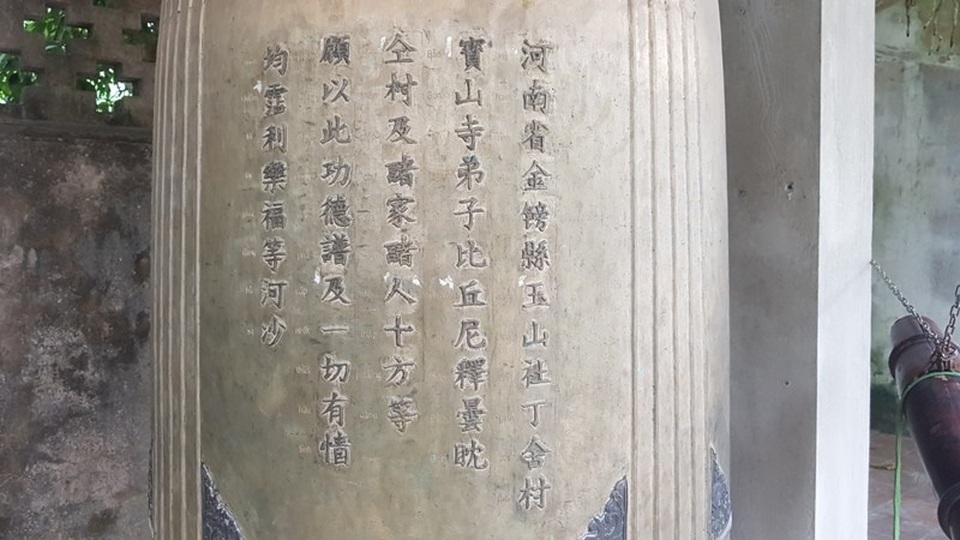 河南省金榜縣玉山社丁舍村
寶山寺弟子比丘尼釋曇眈
仝村及諸家諸人十方等
願以此功德譜及一切有情
均霑利樂福等河沙